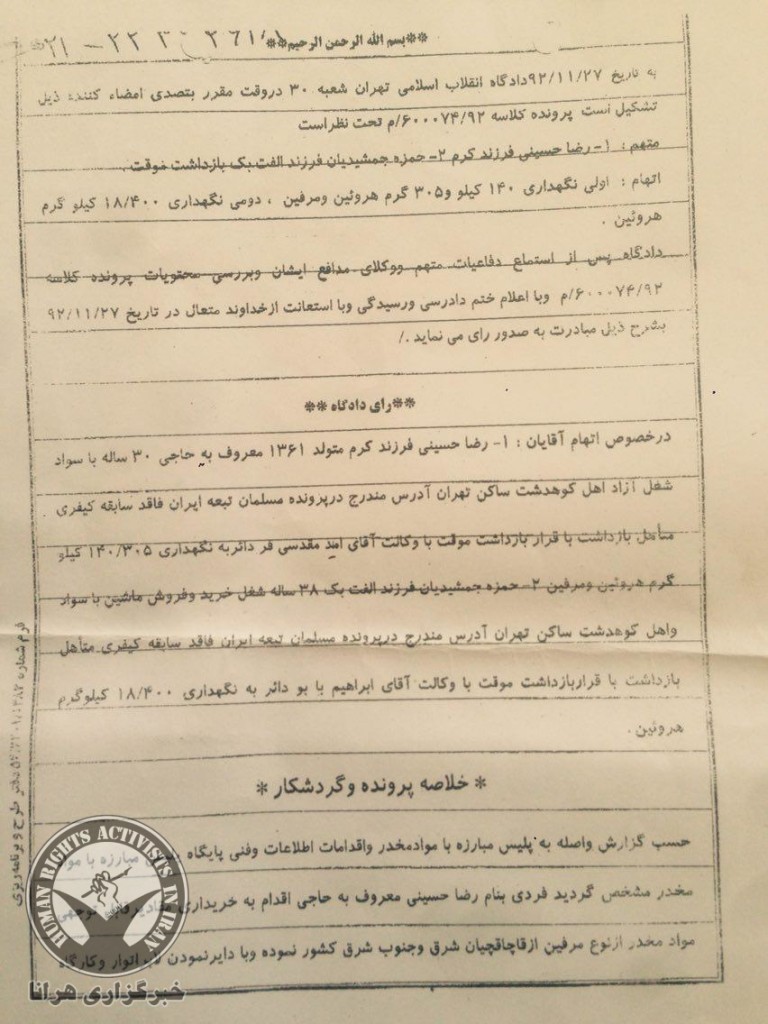 **بسم الله الرحمن الرحیم**
به تاریخ ۹۲/۱۱/۲۷دادگاه انقلاب اسلامی تهران شعبه ۳۰ دروقت مقرر بتصدی امضاء کننده ذیل
تشکیل است پرونده کلاسه ۶۰۰۰۷۴/۹۲/م تحت نظراست
متهم : ۱- رضا حسینی فرزند کرم ۲- حمزه جمشیدیان فرزند الفت بک بازداشت موقت .
اتهام : اولی نگهداری ۱۴۰ کیلو و۳۰۵ گرم هروئین ومرفین ، دومی نگهداری ۱۸/۴۰۰ کیلو گرم
هروئین .
دادگاه پس از استماع دفاعیات متهم ووکلای مدافع ایشان وبررسی محتویات پرونده کلاسه
۶۰۰۰۷۴/۹۲/م وبا اعلام ختم دادرسی ورسیدگی وبا استعانت ازخداوند متعال در تاریخ ۹۲/۱۱/۲۷
بشرح ذیل مبادرت به صدور رای می نماید ./
**رای دادگاه **
درخصوص اتهام آقایان : ۱- رضا حسینی فرزند کرم متولد ۱۳۶۱ معروف به حاجی ۳۰ ساله با سواد
شغل آزاد اهل کوهدشت ساکن تهران آدرس مندرج درپرونده مسلمان تبعه ایران فاقد سابقه کیفری
متأهل بازداشت با قرار بازداشت موقت با وکالت آقای امید مقدسی فر دائربه نگهداری ۱۴۰/۳۰۵ کیلو
گرم هروئین ومرفین ۲- حمزه جمشیدیان فرزند الفت بک ۳۸ ساله شغل خرید وفروش ماشین با سواد
واهل کوهدشت ساکن تهران آدرس مندرج درپرونده مسلمان تبعه ایران فاقد سابقه کیفری متأهل
بازداشت با قراربازداشت موقت با وکالت آقای ابراهیم با بو دائر به نگهداری ۱۸/۴۰۰ کیلوگرم
هروئین .
* خلاصه پرونده وگردشکار *
حسب گزارش واصله به پلیس مبارزه با موادمخدر واقدامات اطلاعات وفنی پایگاه مبارزه با مواد
مخدر مشخص گردید فردی بنام رضا حسینی معروف به حاجی اقدام به خریداری
مواد مخدر ازنوع مرفین ازقاچاقچیان شرق وجنوب شرق کشور نموده وبا دایرنمودن وکارگاه
دفتر طرح و برنامه‌ریزی
فرم شماره
HUMAN RIGHTS ACTIVISTS IN IRAN
خبرگزاری هرانا